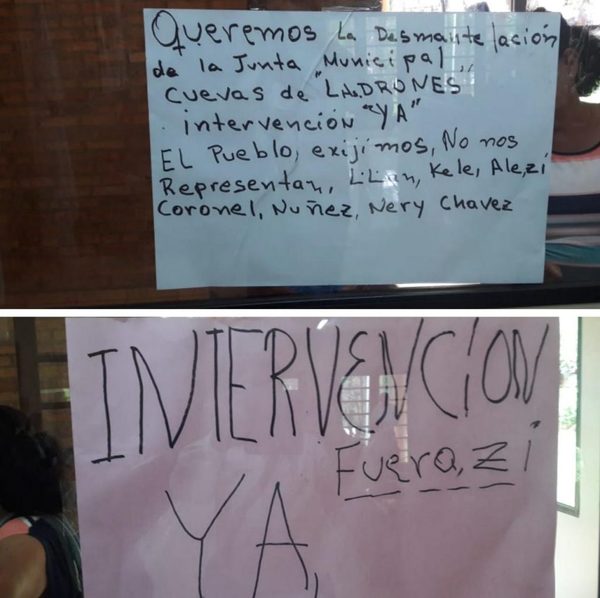 Queremos La Desmantelación
de la Junta "Municipal"
cuevas de "LADRONES"
intervención "YA"
EL Pueblo, exijimos, No nos
Representan, Lilian, Kele, Ale,zi
Coronel, Nuñez, Nery Chavez
INTERVENCIÓN
Fuera, Zi
YA,